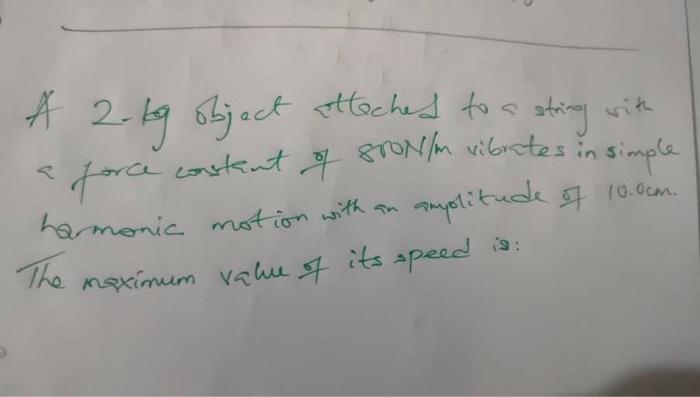 A 2-kg object attached to a string with
a force constant of 800N/m vibrates in simple
harmonic motion with an amplitude of 10.0cm.
The maximum value of its speed is: